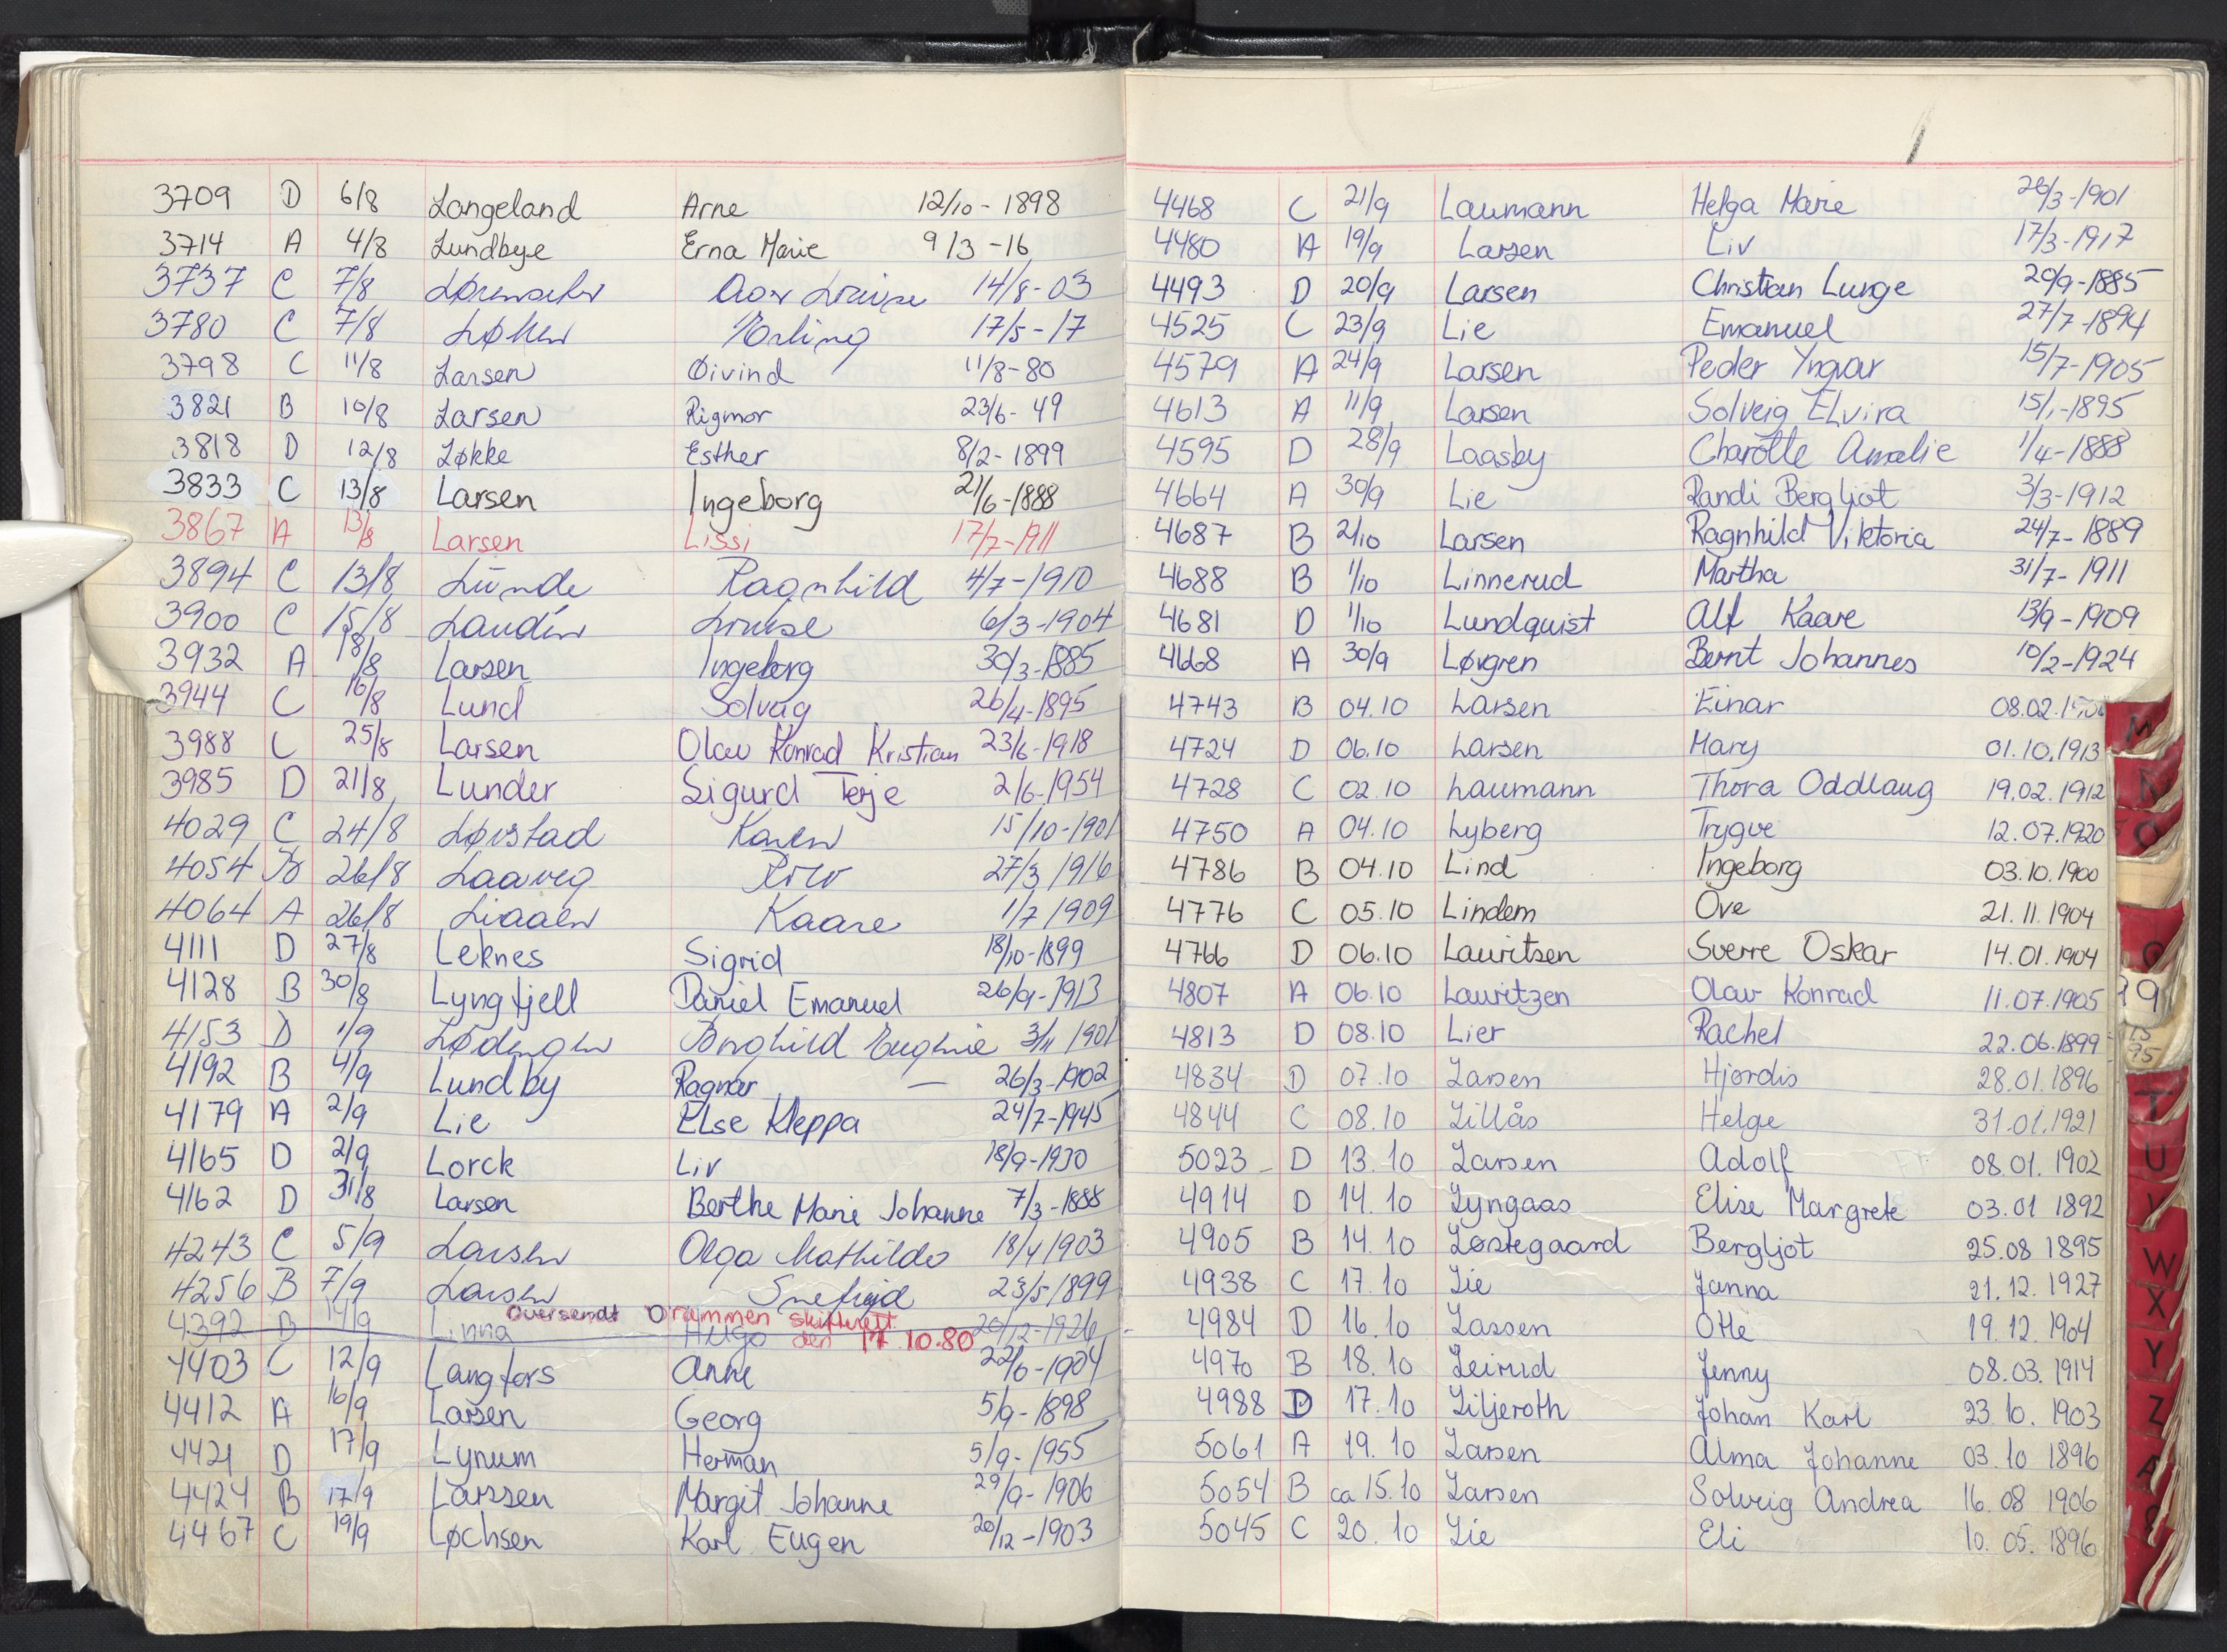 3709 D 6/8 Langeland Arne 12/10 - 1898
3714 A 4/8 Lundbye Erna Marie 9/3 -16
3737 C 7/8 14/8-03
3780 C 7/8 Løken Erling 17/5-17
3798 C 11/8 Larsen Øivind 11/8-80
3821 B 10/8 Larsen Rigmor 23/6-49
3818 D 12/8 Løkke Esther 8/2-1899
3833 C 13/8 Larsen Ingeborg 21/6-1888
3867 A 13/8 Larsen Lissi 17/7-1911
3894 C 13/8 Lunde Ragnhild 4/7-1910
3900 C 15/8 Louise 6/3-1904
3932 A 18/8 Larsen Ingeborg 30/3-1885
3944 C 16/8 Lund Solvåg 26/4-1895
3988 C 25/8 Larsen Olav Konrad Kristian 23/6-1918
3985 D 21/8 Lunder Sigurd Terje 2/6-1954
4029 C 24/8 Løvstad Karen 15/10-1901
4054 B 26/8 Laaveg 27/3 1916
4064 A 26/8 Liaaen Kaare 1/7 1909
4111 D 27/8 Leknes Sigrid 18/10-1899
4128 B 30/8 Lyngfjell Daniel Emanuel 26/9-1913
4153 D 1/9 Lødengen Borghild Eugenie 3/11 1901
4192 B 4/9 Lundby Ragnar — 26/3-1902
4179 A 2/9 Lie Else Kleppa 24/7-1945
4165 D 2/9 Lorck Liv 18/9-1930
4162 D 31/8 Larsen Berthe Marie Johanne 7/3-1888
4243 C 5/9 Larsen Olga Mathilde 18/4 1903
4256 B 7/9 Larsen Snefrid 23/5 1899
Oversendt Drammen skifterett
4392 B 14/9 Linna Hugo den 17.10.80 20/12-1926
4403 C 12/9 Langfors Anne 22/6-1904
4412 A 16/9 Larsen Georg 5/9-1898
4421 D 17/9 Lynum Herman 5/9-1955
4424 B 17/9 Larssen Margit Johanne 29/9-1906
4467 C 19/9 Løchsen Karl Eugen 20/12-1903
4468 C 21/9 Laumann Helga Marie 26/3-1901
4480 A 19/9 Larsen Liv 17/3-1917
4493 D 20/9 Larsen Christian Lunge 20/9-1885
4525 C 23/9 Lie Emanuel 27/7-1894
4579 A 24/9 Larsen Peder Yngvar 15/7-1905
4613 A 11/9 Larsen Solveig Elvira 15/1-1895
4595 D 28/9 Laasby Charotte Amalie 1/4-1888
4664 A 30/9 Lie Randi Bergljot 3/3-1912
4687 B 2/10 Larsen Ragnhild Viktoria 24/7-1889
4688 B 1/10 Linnerud Martha 31/7-1911
4681 D 1/10 Lundquist Alf Kaare 13/9-1909
4668 A 30/9 Løvgren Bernt Johannes 10/2-1924
4743 B 04.10 Larsen Einar 08.02.
4724 D 06.10 Larsen Mary 01.10.1913
4728 C 02.10 Laumann Thora Oddlaug 19.02.1912
4750 A 04.10 Lyberg Trygve 12.07.1920
4786 B 04.10 Lind Ingeborg 03.10.1900
4776 C 05.10 Lindem Ove 21.11.1904
4766 D 06.10 Lauritsen Sverre Oskar 14.01.1904
4807 A 06.10 Lauritzen Olav Konrad 11.07.1905
4813 D 08.10 Lier Rachel 22.06.1899
4834 D 07.10 Larsen Hjørdis 28.01.1896
4844 C 08.10 Lillås Helge 31.01.1921
5023 D 13.10 Larsen Adolf 08.01.1902
4914 D 14.10 Lyngaas Elise Margrete 03.01 1892
4905 B 14.10 Løstegaard Bergljot 25.08 1895
4938 C 17.10 Lie Janna 21.12.1927
4984 D 16.10 Lassen Otte 19.12.1904
4970 B 18.10 Leirud Jenny 08.03.1914
4988 D 17.10 Liljeroth Johan Karl 23.10.1903
5061 A 19.10 Larsen Alma Johanne 03.10 1896
5054 B ca 15.10 Larsen Solveig Andrea 16.08 1906
5045 C 20.10 Lie Eli 10.05.1896
M
O
T
U
V
W
X
Y
Z